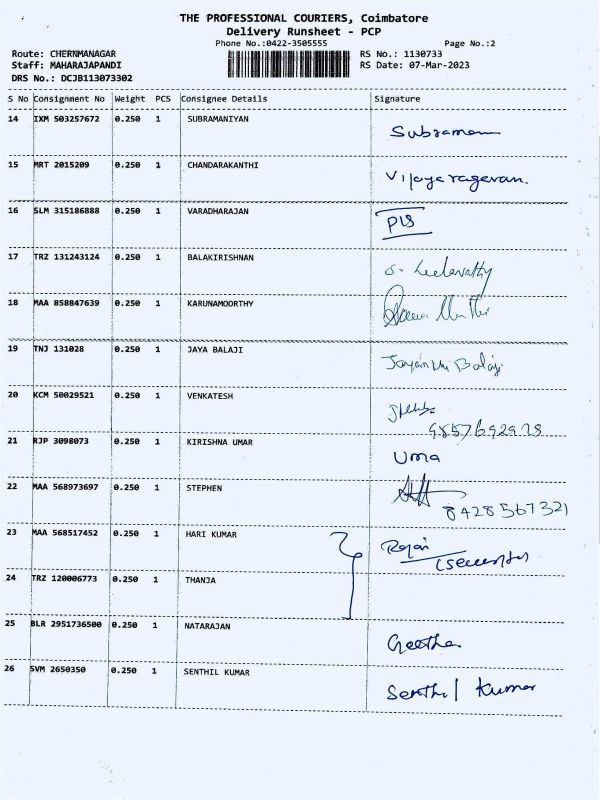 THE PROFESSIONAL COURIERS, Coimbatore
Delivery Runsheet - PCP
Phone No.:0422-3505555 Page No.:2
Route: CHERNMANAGAR RS No.: 1130733
Staff: MAHARAJAPANDI RS Date: 07-Mar-2023
DRS No.: DCJB113073302
S No Consignment No Weight PCS Consignee Details Signature
14 IXM 503257672 0.250 1 SUBRAMANIYAN Subraman
15 MRT 2015209 0.250 1 CHANDARAKANTHI Vijayaragavan.
16 SLM 315186888 0.250 1 VARADHARAJAN
17 TRZ 131243124 0.250 1 BALAKIRISHNAN S. Leelavathy
18 MAA 858847639 0.250 1 KARUNAMOORTHY
19 TNJ 131028 0.250 1 JAYA BALAJI Balaji
20 KCM 50029521 0.250 1 VENKATESH
21 RJP 3098073 0.250 1 KIRISHNA UMAR Uma
22 MAA 568973697 0.250 1 STEPHEN
8428567321
23 MAA 568517452 0.250 1 HARI KUMAR Rajan
24 TRZ 120006773 0.250 1 THANJA
25 BLR 2951736500 0.250 1 NATARAJAN Geetha
26 SVM 2650350 0.250 1 SENTHIL KUMAR Senthil Kumar